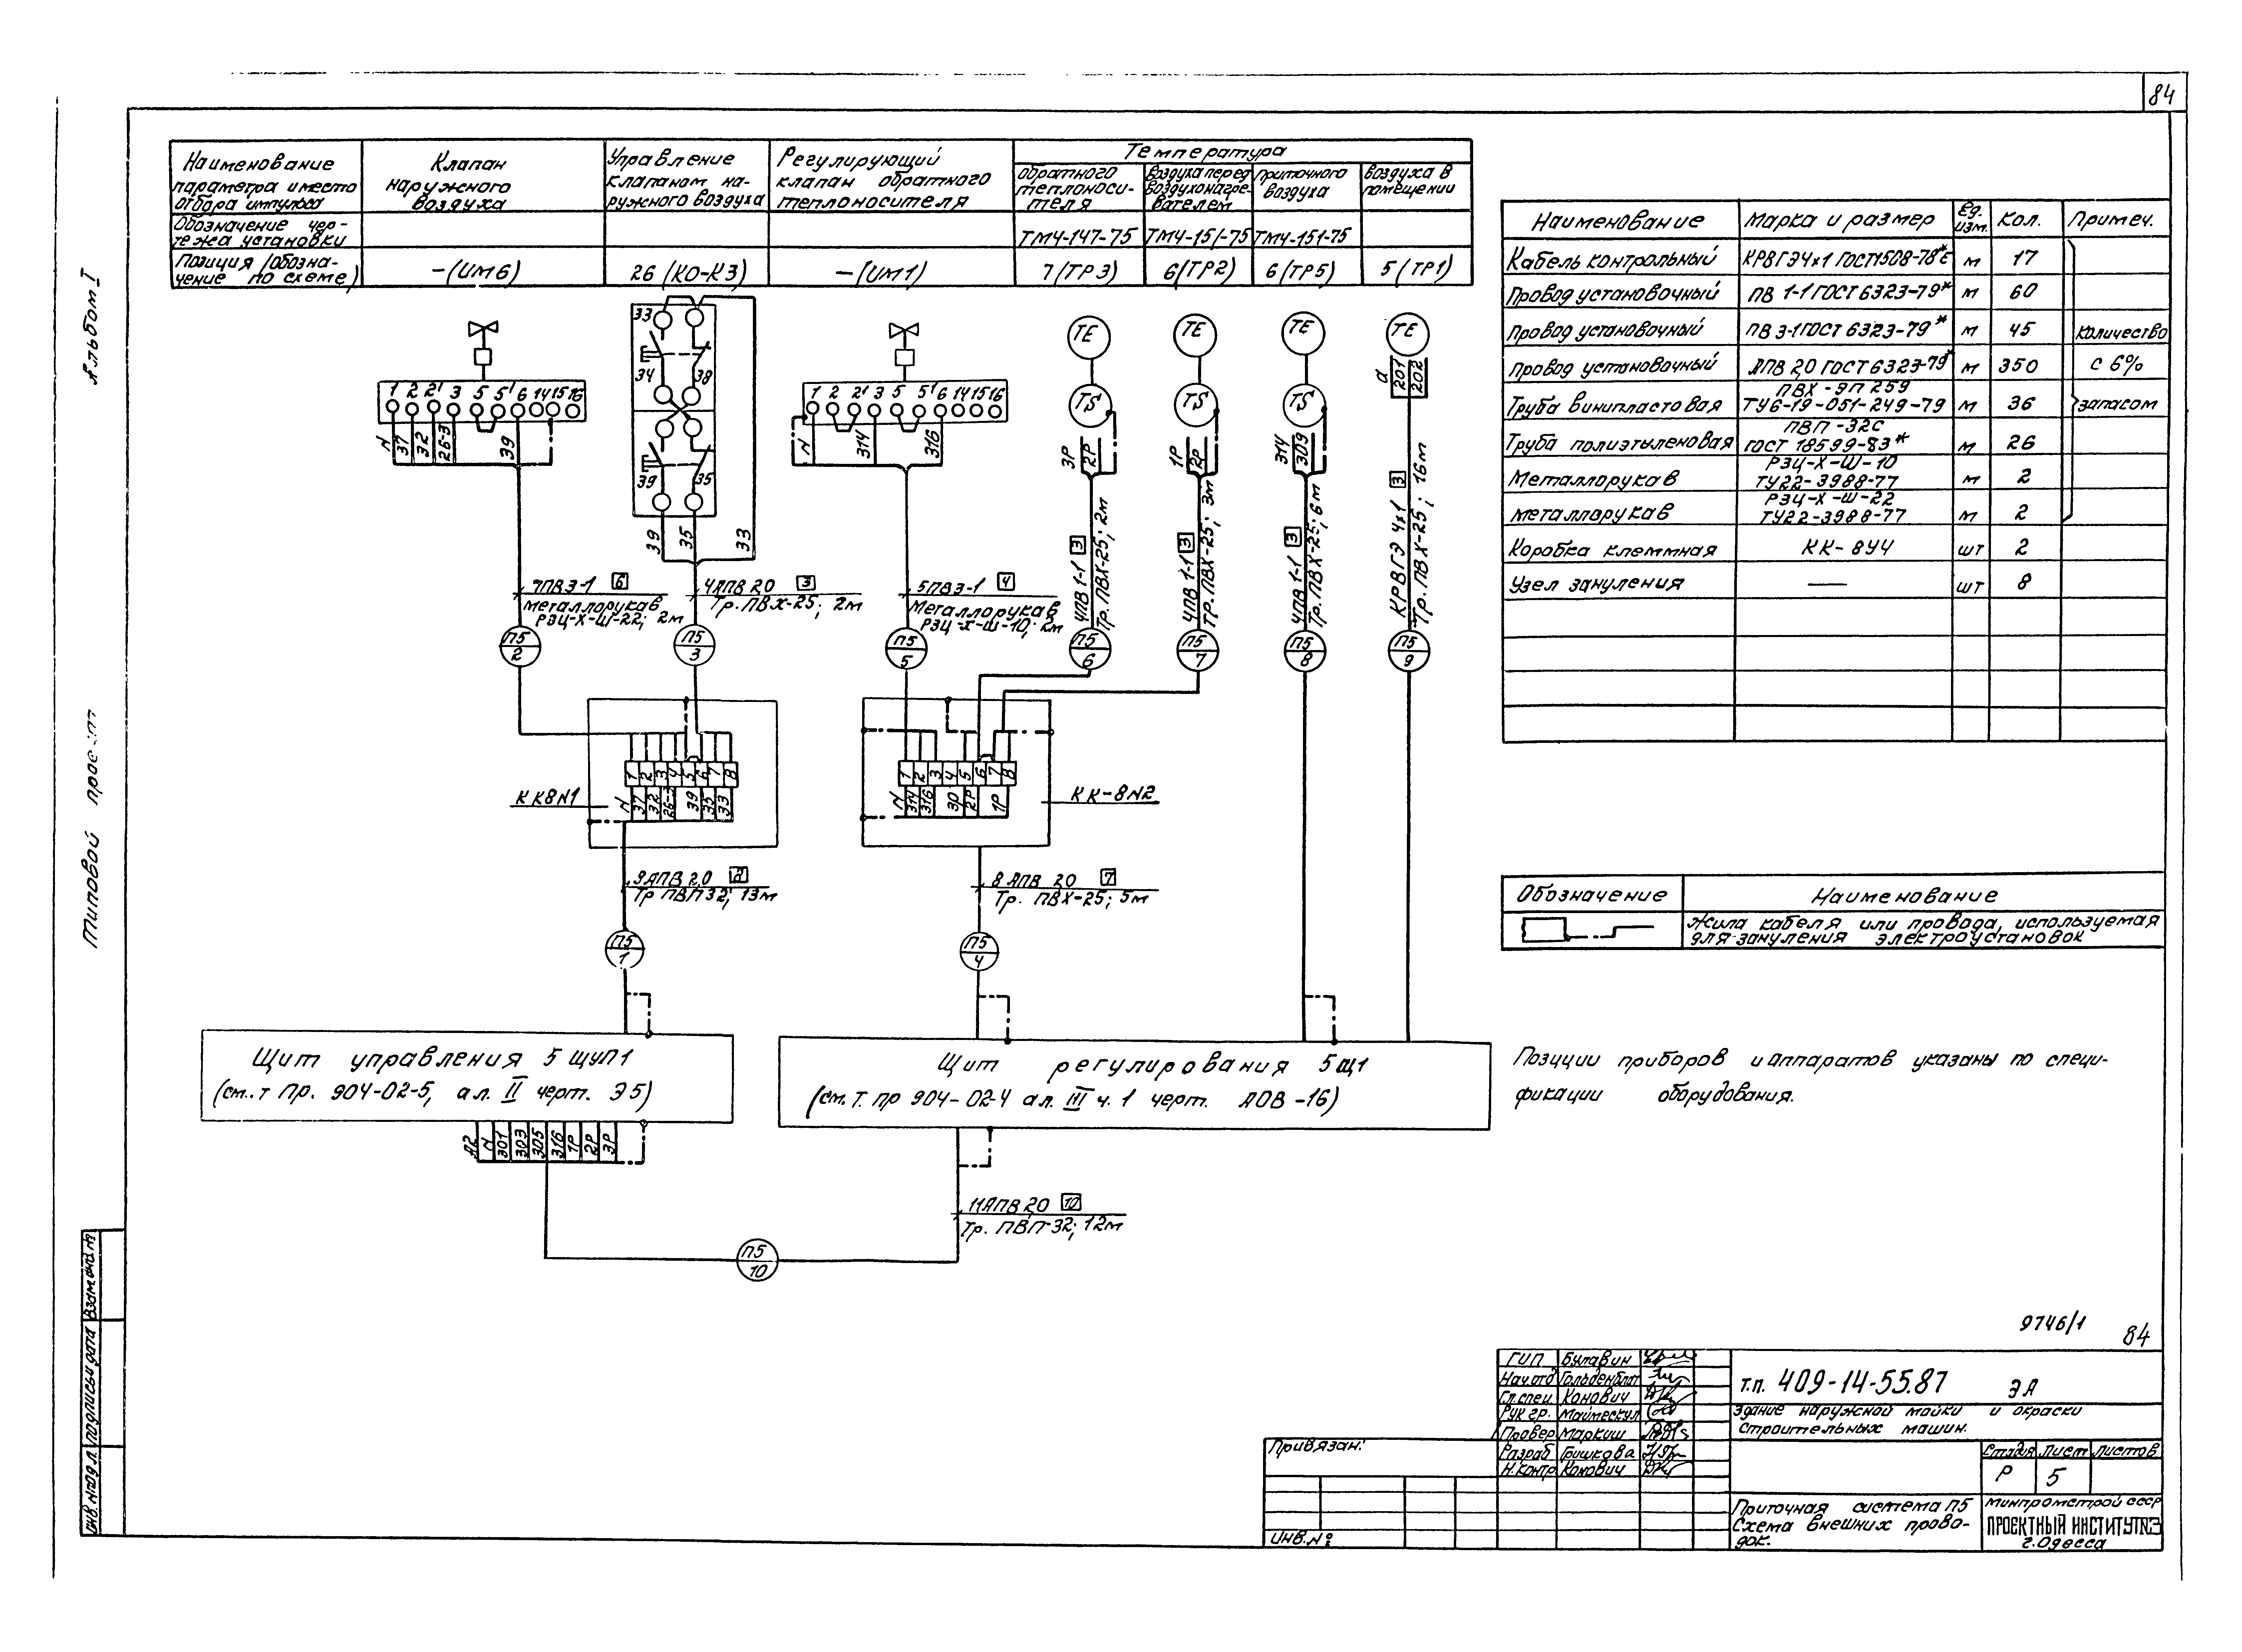 84
Альбом I
Типовой проект
Наименование параметра и место отбора импульса
Клапан наружного воздуха
Управление клапаном наружного воздуха
Регулирующий клапан обратного теплоносителя
Температура
обратного теплоносителя
воздуха перед воздухонагревателем
приточного воздуха
воздуха в помещении
Обозначение чертежа установки
ТМЧ-147-75
ТМЧ-151-75
ТМЧ-151-75
Позиция (обозначение по схеме)
–(ИМ6)
26 (КО-КЗ)
–(ИМ1)
7(ТР3)
6(ТР2)
6(ТР5)
5(ТР1)
1 2 2' 3 5 5' 6 14 15 16
N 37 32 26-3 39
33
34
38
39
35
39 35 33
1 2 2' 3 5 5' 6 14 15 16
N 314 316
ТЕ ТЕ ТЕ ТЕ
TS TS TS
3Р 2Р
1Р 2Р
314 309
а 201 202
7ПВ3-1 6
Металлорукав
РЗЦ-Х-Ш-22; 2м
4АПВ 2,0 3
Тр. ПВХ-25; 2м
5ПВ3-1 4
Металлорукав
РЗЦ-Х-Ш-10; 2м
4ПВ 1-1 3
Тр. ПВХ-25; 2м
4ПВ 1-1 3
Тр. ПВХ-25; 3м
4ПВ 1-1 3
Тр. ПВХ-25; 6м
КРВГЭ 4х1 3
Тр. ПВХ-25; 16м
П5 2
П5 3
П5 5
П5 6
П5 7
П5 8
П5 9
1 2 3 4 5 6 7 8
N 37 32 26-3 39 35 33
КК8N1
1 2 3 4 5 6 7 8
N 314 316 3Р 2Р 1Р
КК-8N2
9АПВ 2,0 8
Тр ПВП32; 13м
8 АПВ 2,0 7
Тр. ПВХ-25; 5м
П5 1
П5 4
Щит управления 5 ЩУП1
(см. т Пр. 904-02-5, ал. II черт. Э5)
Щит регулирования 5Щ1
(см. т. пр 904-02-4 ал. III ч. 1 черт. АОВ-16)
А2 N 301 303 305 316 1Р 2Р 3Р
11АПВ 2,0 10
Тр. ПВП-32; 12м
П5 10
Наименование Марка и размер Ед. изм. Кол. Примеч.
Кабель контрольный КРВГЭ4х1 ГОСТ1508-78*Е м 17
Провод установочный ПВ 1-1 ГОСТ 6323-79* м 60
Провод установочный ПВ 3-1 ГОСТ 6323-79* м 45
Провод установочный АПВ 2,0 ГОСТ 6323-79* м 350
Труба винипластовая ПВХ-ЭП 25э ТУ6-19-051-249-79 м 36
Труба полиэтиленовая ПВП-32С ГОСТ 18599-83* м 26
Металлорукав РЗЦ-Х-Ш-10 ТУ22-3988-77 м 2
Металлорукав РЗЦ-Х-Ш-22 ТУ22-3988-77 м 2
Коробка клеммная КК-8У4 шт 2
Узел зануления — шт 8
количество
с 6%
запасом
Обозначение Наименование
Жила кабеля или провода, используемая
для зануления электроустановок
Позиции приборов и аппаратов указаны по специ-
фикации оборудования.
9746/1 84
ГИП Булавин
Нач.отд Гольденблат
Гл.спец. Конович
Рук гр. Маймескул
Провер Маркиш
Разраб Гришкова
Н.контр Конович
т.п. 409-14-55.87 ЭА
Здание наружной мойки и окраски
строительных машин.
Стадия Лист Листов
Р 5
Приточная система П5
Схема внешних прово-
док.
Минпромстрой СССР
ПРОЕКТНЫЙ ИНСТИТУТ №3
г. Одесса
Привязан:
ИНВ. №
Инв. № подл. Подпись и дата Взам. инв. №